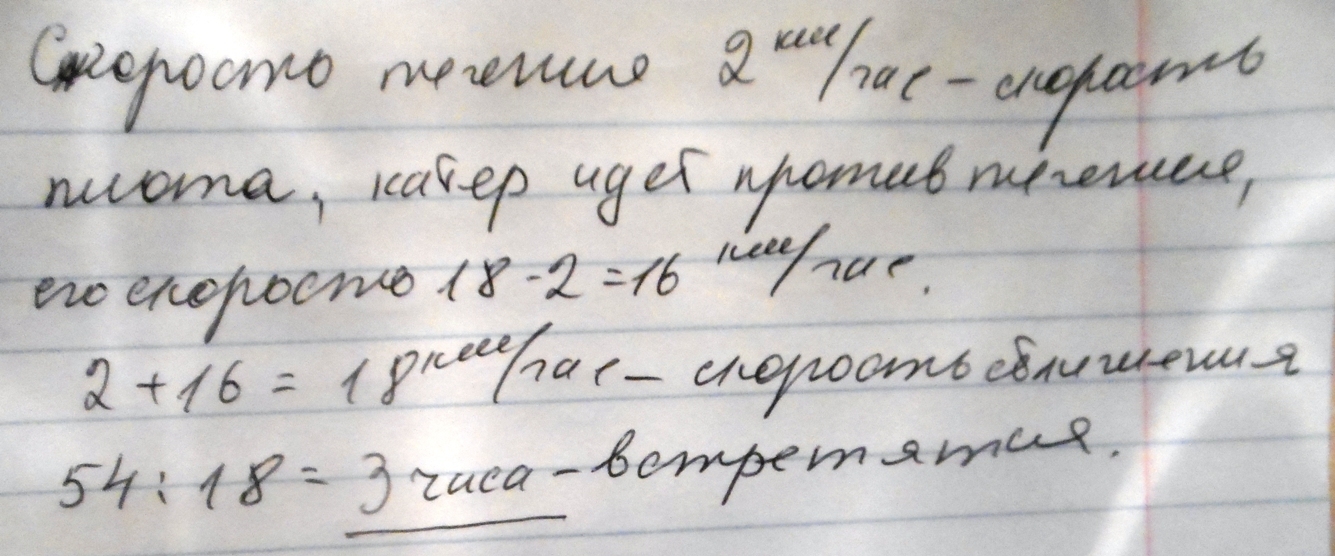 Скорость течения 2 км/час – скорость
плота, катер идет против течения,
его скорость 18 - 2 = 16 км/час.
2 + 16 = 18 км/час – скорость сближения
54 : 18 = 3 часа – встретятся.